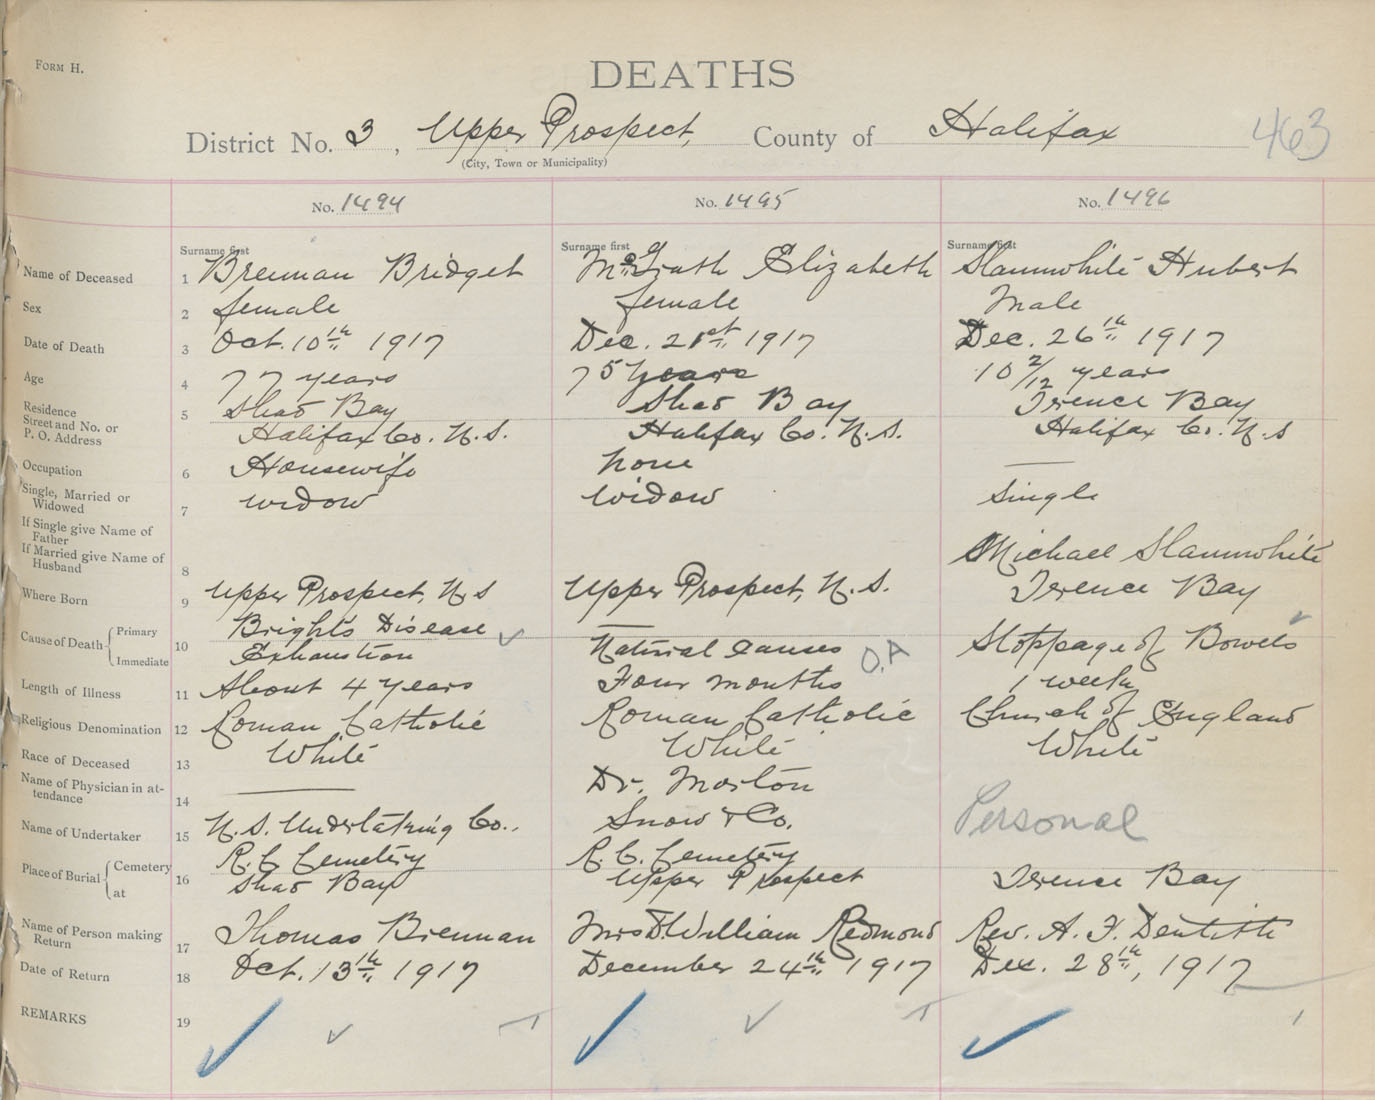 FORM H.
DEATHS
District No. 3, Upper Prospect, County of Halifax 463
(City, Town or Municipality)
No. 1494 No. 1495 No. 1496
Surname first Surname first Surname first
Name of Deceased 1 Brennan Bridget McGrath Elizabeth Slaunwhite Hubert
Sex 2 female female Male
Date of Death 3 Oct. 10th 1917 Dec. 21st 1917 Dec. 26th 1917
Age 4 77 years 75 years 10 2/12 years
Residence 5 Shad Bay Shad Bay Terence Bay
Street and No. or
P. O. Address Halifax Co. N.S. Halifax Co. N.S. Halifax Co. N.S
Occupation 6 Housewife none —
Single, Married or
Widowed 7 widow widow Single
If Single give Name of
Father
If Married give Name of
Husband 8 Michael Slaunwhite
Where Born 9 Upper Prospect, N.S Upper Prospect, N.S. Terence Bay
Cause of Death { Primary 10 Bright's Disease — Stoppage of Bowels
Immediate Exhaustion Natural Causes O.A
Length of Illness 11 About 4 years Four months 1 week
Religious Denomination 12 Roman Catholic Roman Catholic Church of England
Race of Deceased 13 White White White
Name of Physician in at-
tendance 14 — Dr. Morton
Name of Undertaker 15 N.S. Undertaking Co. Snow & Co. Personal
Place of Burial { Cemetery 16 R.C. Cemetery R.C. Cemetery
at Shad Bay Upper Prospect Terence Bay
Name of Person making
Return 17 Thomas Brennan Mrs William Redmond Rev. A. F. Dentith
Date of Return 18 Oct. 13th 1917 December 24th 1917 Dec. 28th, 1917
REMARKS 19